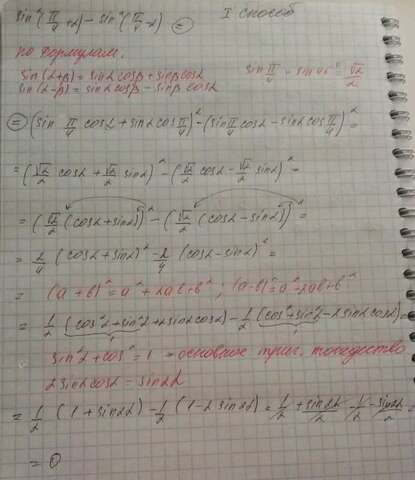 sin²(π/4+α)-sin²(π/4-α) = I способ
по формулам.
sin(α+β)=sinα cosβ+sinβ cosα
sin(α-β)=sinα cosβ-sinβ cosα
sin π/4 = sin 45° = √2/2
=(sin π/4 cosα+sinα cos π/4)²-(sin π/4 cosα-sinα cos π/4)²=
=(√2/2 cosα+√2/2 sinα)²-(√2/2 cosα-√2/2 sinα)²=
=(√2/2 (cosα+sinα))²-(√2/2 (cosα-sinα))²=
=2/4 (cosα+sinα)²-2/4 (cosα-sinα)²=
=(a+b)²=a²+2ab+b²; (a-b)²=a²-2ab+b²
=1/2 (cos²α+sin²α+2sinα cosα)-1/2 (cos²α+sin²α-2sinα cosα)=
sin²α+cos²α=1 - основное триг. тождество
2sinα cosα=sin2α
=1/2 (1+sin2α)-1/2 (1-2sin2α)=1/2+sin2α/2-1/2-sin2α/2=
=0